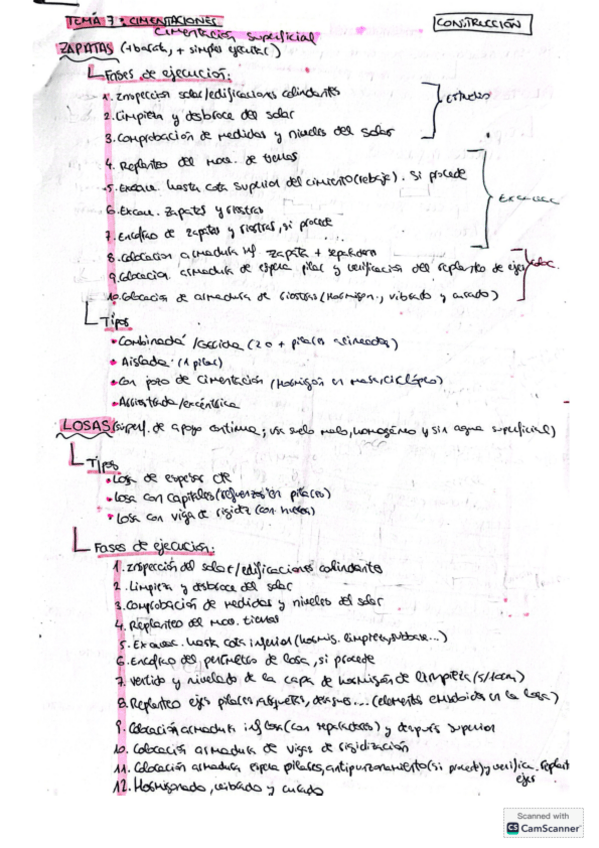 TEMA 7: CIMENTACIONES
CONSTRUCCION
Cimentación superficial
ZAPATAS (+barata, + simples ejecutar)
Fases de ejecución:
1. Inspección solar/edificaciones colindantes
2. Limpieza y desbroce del solar
3. Comprobación de medidas y niveles del solar
estudio
4. Replanteo del mov. de tierras
5. Excav. hasta cota superior del cimiento (rebaje). Si procede
6. Excav. zapatas y riostras
7. Encofrao de zapatas y riostras, si procede
8. Colocacion armadura inf. zapata + separadores
9. Colocacion armadura de espera pilar y verificación del replanteo de ejes
coloc.
10. Colocación de armadura de riostras (Hormigon., vibrado y curado)
Tipos
• Combinada /corrida (2 o + pilares alineados)
• Aislada (1 pilar)
• Con pozo de cimentación (Hormigón en masa/ciclópeo)
• Arriostrada/excéntrica
LOSAS (superf. de apoyo continua; suelo malo, homogéneo y sin agua superficial)
Tipos
• Losa de espesor cte
• Losa con capiteles (refuerzos en pilares)
• Losa con viga de rigidez (con huecos)
Fases de ejecución:
1. Inspección del solar/edificaciones colindantes
2. Limpieza y desbroce del solar
3. Comprobación de medidas y niveles del solar
4. Replanteo del mov. tierras
5. Excav. hasta cota inferior (hormig. limpieza, subbase...)
6. Encofrao del perímetro de losa, si procede
7. Vertido y nivelado de la capa de hormigón de limpieza (5/10cm)
8. Replanteo ejes pilares, arquetas, desagues... (elementos embebidos en la losa)
9. Colocación armadura inf losa (con separadores) y después superior
10. Colocación armadura de vigas de rigidización
11. Colocación armadura espera pilares, antipunzonamiento (si procede) y verifica. replant
ejes
12. Hormigonado, vibrado y curado
Scanned with
CS CamScanner